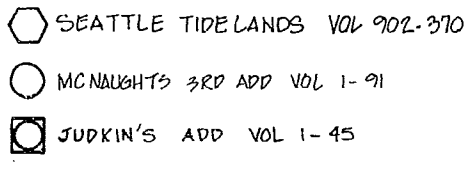 SEATTLE TIDELANDS VOL 902-370
MCNAUGHTS 3RD ADD VOL 1-91
JUDKIN'S ADD VOL 1-45